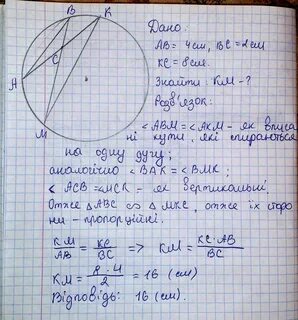 B K
C
A
M
Дано:
AB = 4см, BC = 2см
KC = 8см.
Знайти: KM - ?
Розв'язок:
<ABM = <AKM - як вписа
ні кути, які спираються
на одну дугу;
аналогічно <BAK = <BMK;
<ACB = <MCK - як вертикальні.
Отже △ABC ∽ △MKC, отже їх сторо
ни - пропорційні.
KM/AB = KC/BC => KM = KC·AB/BC
KM = 8·4/2 = 16 (см)
Відповідь: 16 (см).